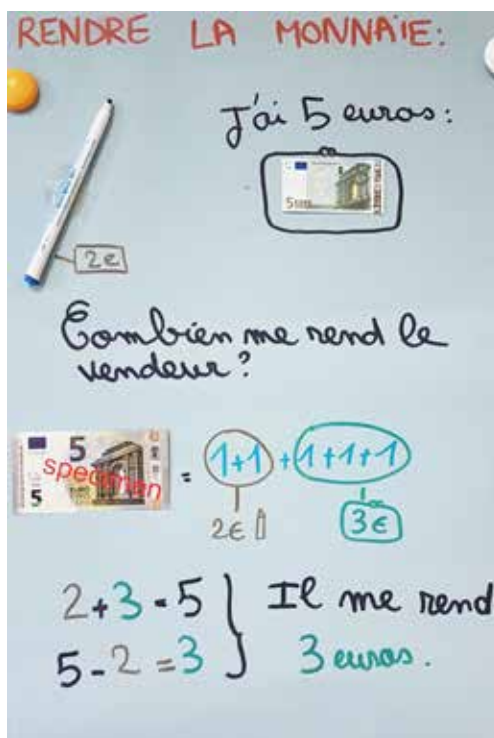 RENDRE LA MONNAIE:
J'ai 5 euros:
5
2€
Combien me rend le
vendeur?
5
specimen
5
= 1+1 + 1+1+1
2€ 3€
2+3=5 } Il me rend
5-2=3 3 euros.